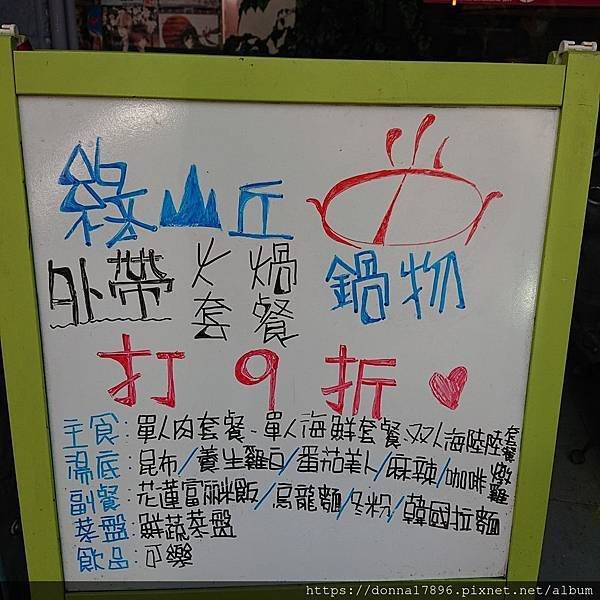 綠山丘
鍋物
外帶火焗套餐
打9折
主食:單人肉套餐、單人海鮮套餐、双人海陸套餐
湯底:昆布/養生雞白/番茄美人/麻辣/咖咪嫩雞
副餐:花蓮富丽米飯/烏龍麵/冬粉/韓國拉麵
菜盤:鮮蔬菜盤
飲品:可樂
https://donna17896.pixnet.net/album